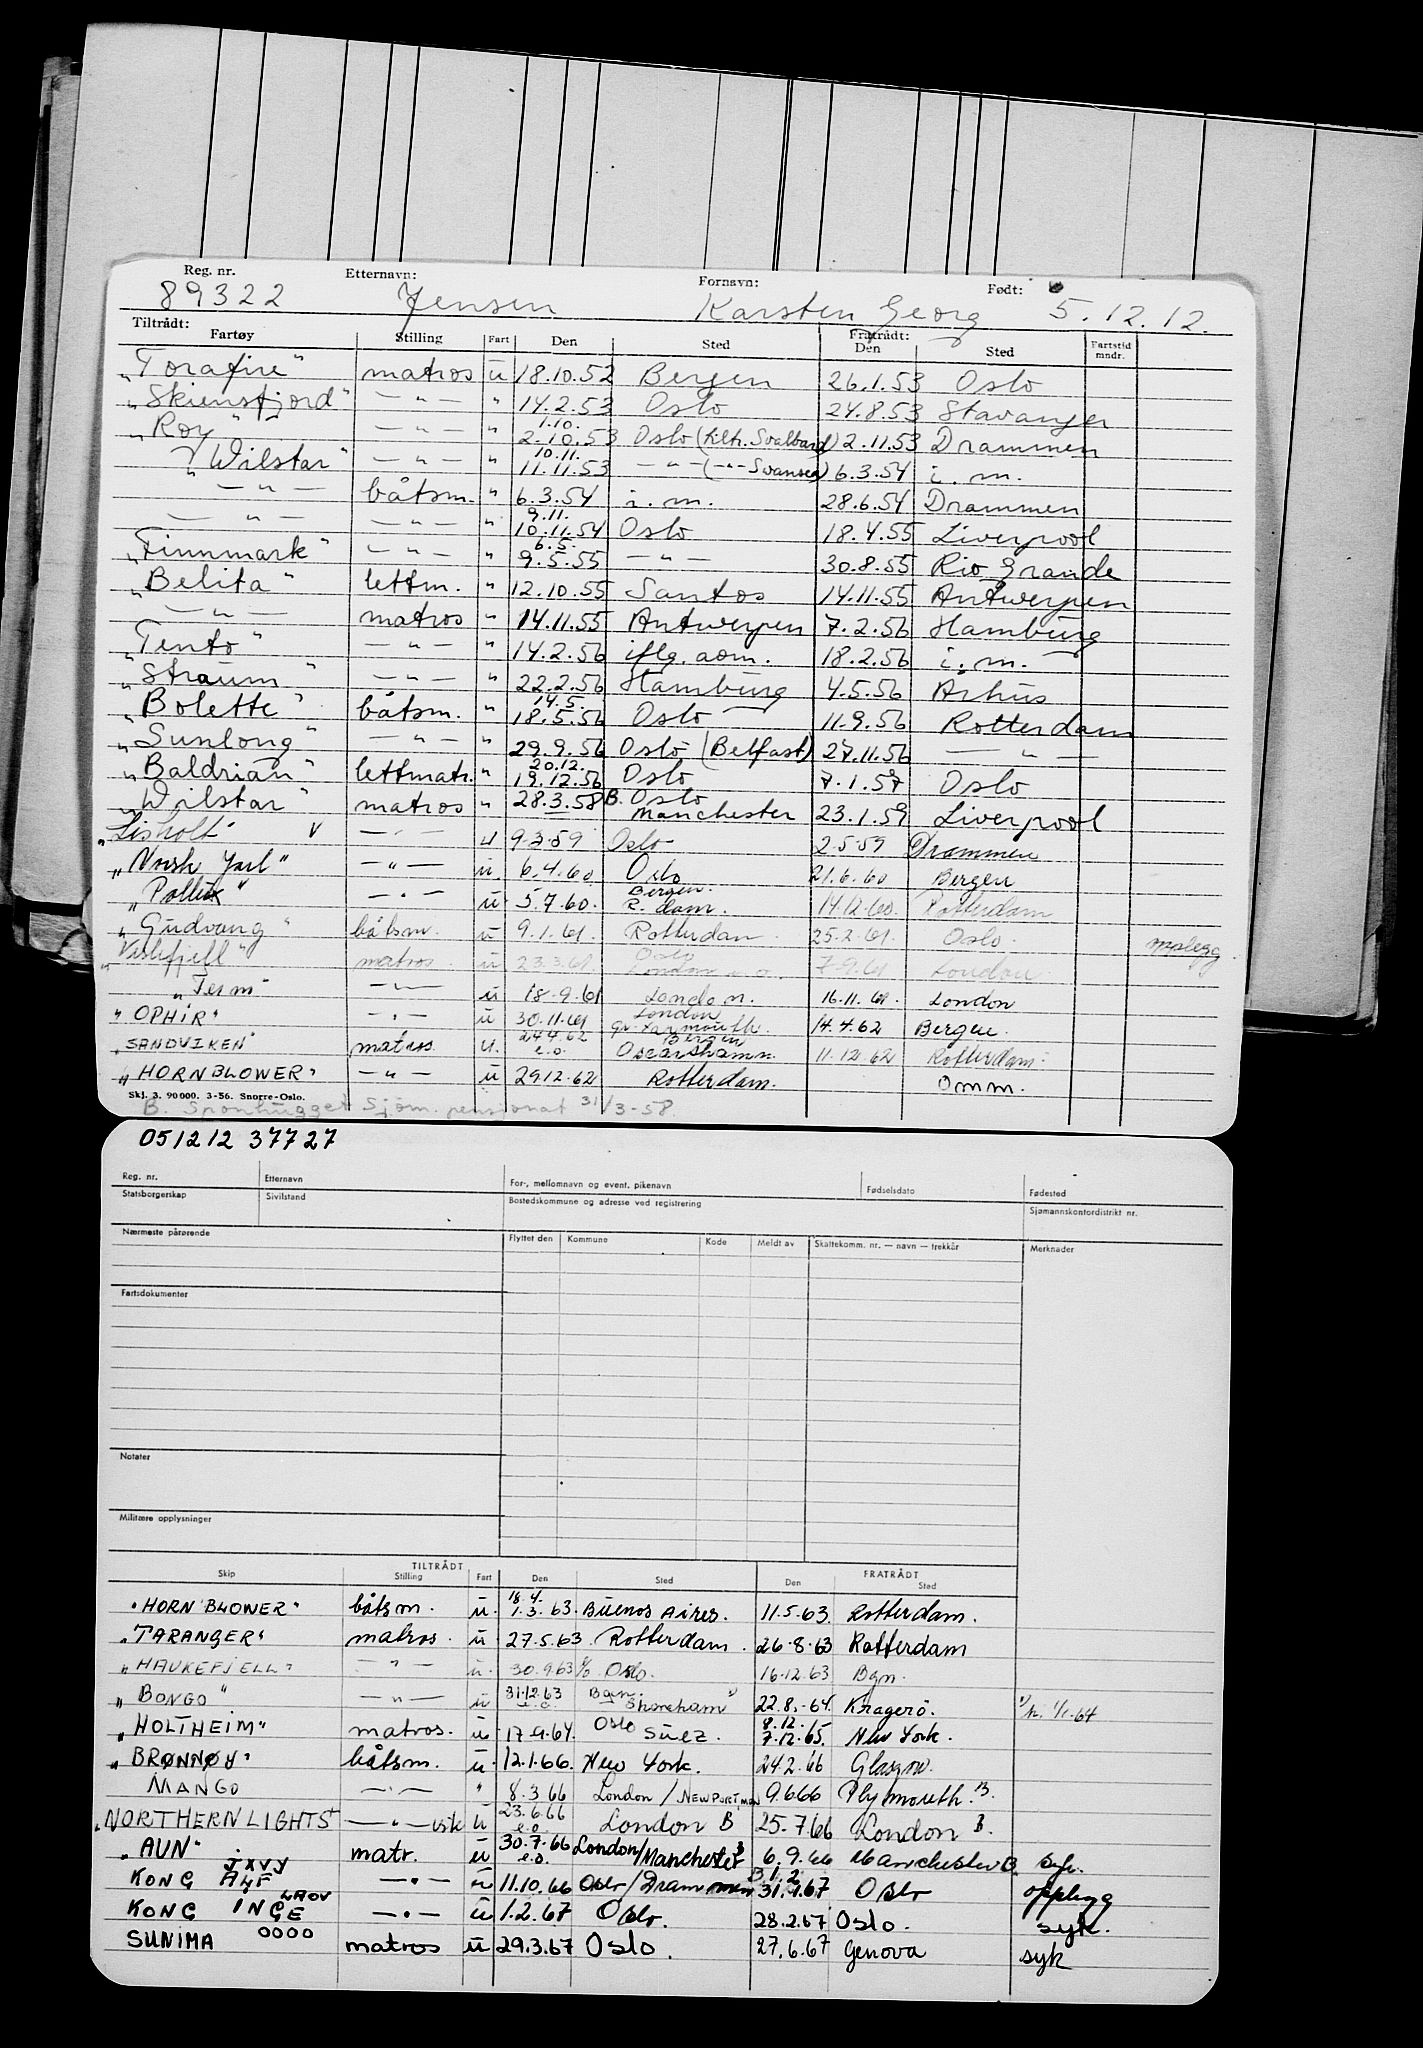 Reg. nr. Etternavn: Fornavn: Født:
89322 Jensen Karsten Georg 5.12.12.
Tiltrådt: Fratrådt:
Fartøy Stilling Fart Den Sted Den Sted Fartstid mndr.
"Torafire" matros u 18.10.52 Bergen 26.1.53 Oslo
"Skiensfjord" — " — " 14.2.53 Oslo 24.8.53 Stavanger
"Roy" — " — " 1.10. 2.10.53 Oslo (tiltr. Svalbard) 2.11.53 Drammen
"Wilstar" — " — " 10.11. 11.11.53 — " — (—"— Swansea) 6.3.54 i.m.
— " — båtsm. " 6.3.54 i.m. 28.6.54 Drammen
— " — — " — " 9.11. 10.11.54 Oslo 18.4.55 Liverpool
"Finnmark" — " — " 6.5. 9.5.55 — " — 30.8.55 Rio Grande
"Belita" lettm. " 12.10.55 Santos 14.11.55 Antwerpen
— " — matros " 14.11.55 Antwerpen 7.2.56 Hamburg
"Tento" — " — " 14.2.56 iflg. aom. 18.2.56 i.m.
"Straum" — " — " 22.2.56 Hamburg 4.5.56 Århus
"Bolette" båtsm. " 14.5. 18.5.56 Oslo 11.9.56 Rotterdam
"Sunlong" — " — " 29.9.56 Oslo (Belfast) 27.11.56 — " —
"Baldrian" lettmatr. " 20.12. 19.12.56 Oslo 7.1.57 Oslo
"Wilstar" matros " 28.3.58 B. Oslo Manchester 23.1.59 Liverpool
"Lisholt" v — " — u 9.3.59 Oslo 2.5.59 Drammen
"Norsk Jarl" — " — u. 6.4.60 Oslo 21.6.60 Bergen
"Pollux" — " — u. 5.7.60. Bergen. R.dam. 14.12.60. Rotterdam
"Gudvang" båtsm. u 9.1.61. Rotterdam 25.2.61. Oslo. opplegg
matros. u 23.3.61. Oslo London 7.9.61 London
— " — u 18.9.61 London. 16.11.61. London
"OPHIR" — " — u 30.11.61 London Gr. Yarmouth. 14.4.62 Bergen.
"SANDVIKEN" matros u. 24.4.62 e.o. Bergen Oscarshamn. 11.12.62 Rotterdam.
"HORNBLOWER" — " — u 29.12.62 Rotterdam. Omm.
Skj. 3. 90000. 3-56. Snorre-Oslo.
B. Sponhugget Sjøm. pensionat 31/3-58.
051212 37727
Reg. nr. Etternavn For-, mellomnavn og event. pikenavn Fødselsdato Fødested
Statsborgerskap Sivilstand Bostedskommune og adresse ved registrering Sjømannskontordistrikt nr.
Nærmeste pårørende Flyttet den Kommune Kode Meldt av Skattekomm. nr. — navn — trekkår Merknader
Fartsdokumenter
Notater
Militære opplysninger
TILTRÅDT FRATRÅDT
Skip Stilling Fart Den Sted Den Sted
"HORNBLOWER" båtsm. u. 18.4. 1.3.63. Buenos Aires. 11.5.63. Rotterdam.
"TARANGER" matros. u 27.5.63 Rotterdam. 26.8.63 Rotterdam
"HAUKEFJELL" — " — u. 30.9.63 Oslo. 16.12.63 Bgn.
"BONGO" — " — u 31.12.63 e.o. Bgn. Shoreham 1) 22.8.-64. Kragerø. 1) 1/1-64
"HOLTHEIM" matros. u. 17.9.64. Oslo Suez. 8.12. 7.12.65. New York.
"BRØNNØY" båtsm. u. 12.1.66. New York. 24.2.66 Glasgow.
MANGO — " — " 8.3.66 London / NEWPORT, MON 9.6.66 Plymouth. B.
"NORTHERN LIGHTS" — " — u 23.6.66 e.o. London B 25.7.66 London B.
"AUN" matr. u 30.7.66 e.o. London/Manchester B 6.9.66 Manchester B. syk.
KONG ALF JXVY — " — u 11.10.66 Oslo/Drammen B.1.2 31.1.67 Oslo opplegg
KONG INGE LAOV — " — u 1.2.67 Oslo. 28.2.67 Oslo. syk.
SUNIMA OOOO matros u 29.3.67 Oslo. 27.6.67 Genova syk